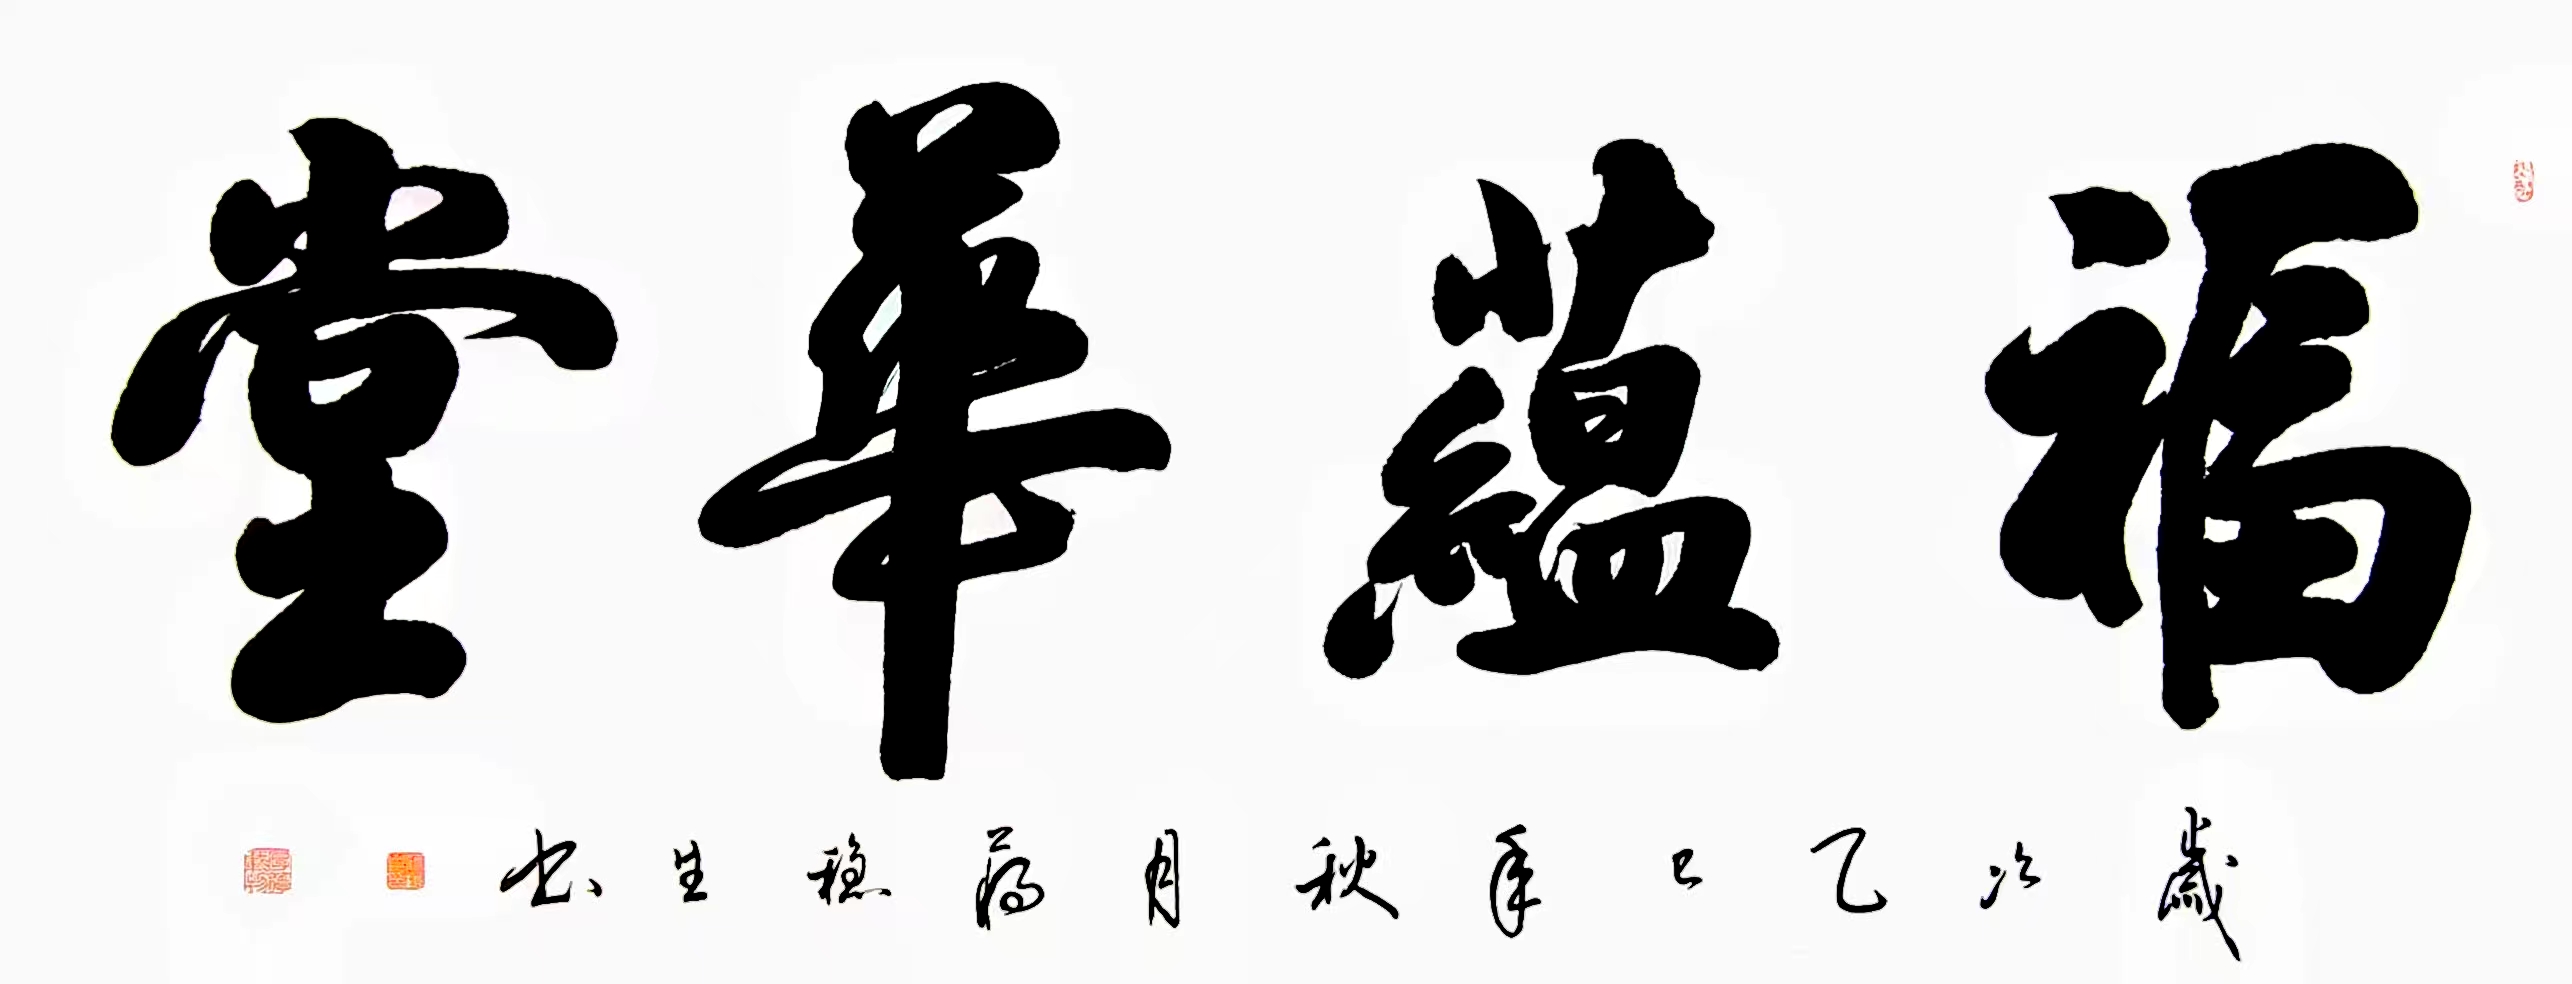 福蘊華堂
歲次乙巳年秋月蔣穩生书